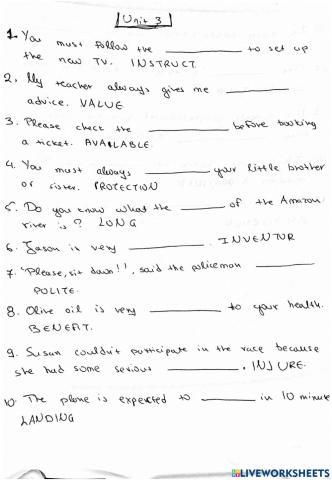 Unit 3
1. You must follow the ________ to set up
the new TV. INSTRUCT.
2. My teacher always gives me ________
advice. VALUE
3. Please check the ________ before booking
a ticket. AVAILABLE.
4. You must always ________ your little brother
or sister. PROTECTION
5. Do you know what the ________ of the Amazon
river is? LONG
6. Jason is very ________. INVENTOR
7. "Please, sit down!!, said the policeman ________
POLITE.
8. Olive oil is very ________ to your health.
BENEFIT.
9. Susan couldn't participate in the race because
she had some serious ________. INJURE.
10. The plane is expected to ________ in 10 minute
LANDING
LIVEWORKSHEETS